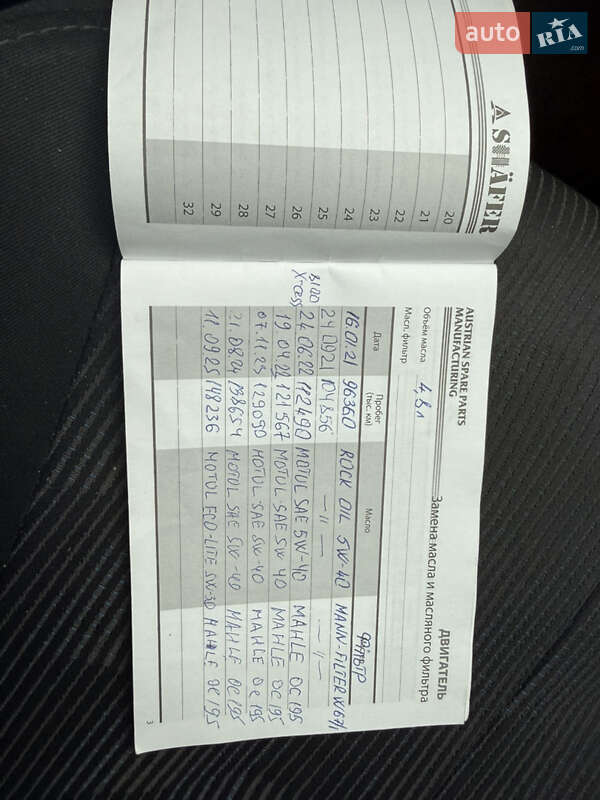 auto RIA .com
A SHÄFER
20
21
22
23
24
25
26
27
28
29
32
AUSTRIAN SPARE PARTS
MANUFACTURING
ДВИГАТЕЛЬ
Замена масла и масляного фильтра
Объём масла 4,8л
Масл. фильтр
Дата Пробег (тыс. км) Масло Фільтр
16.01.21 96360 ROCK OIL 5W-40 MANN-FILTER W67/1
24.09.21 104856 —〃— —〃—
8100
X-cess 24.06.22 112490 MOTUL SAE 5W-40 MAHLE OC195
19.04.22 121567 MOTUL SAE 5W40 MAHLE OC195
07.11.23 129090 MOTUL SAE 5W-40 MAHLE OC195
21.08.24 138654 MOTUL SAE 5W-40 MAHLE OC195
11.09.25 148236 MOTUL ECO-LITE 5W-30 MAHLE OC195
3